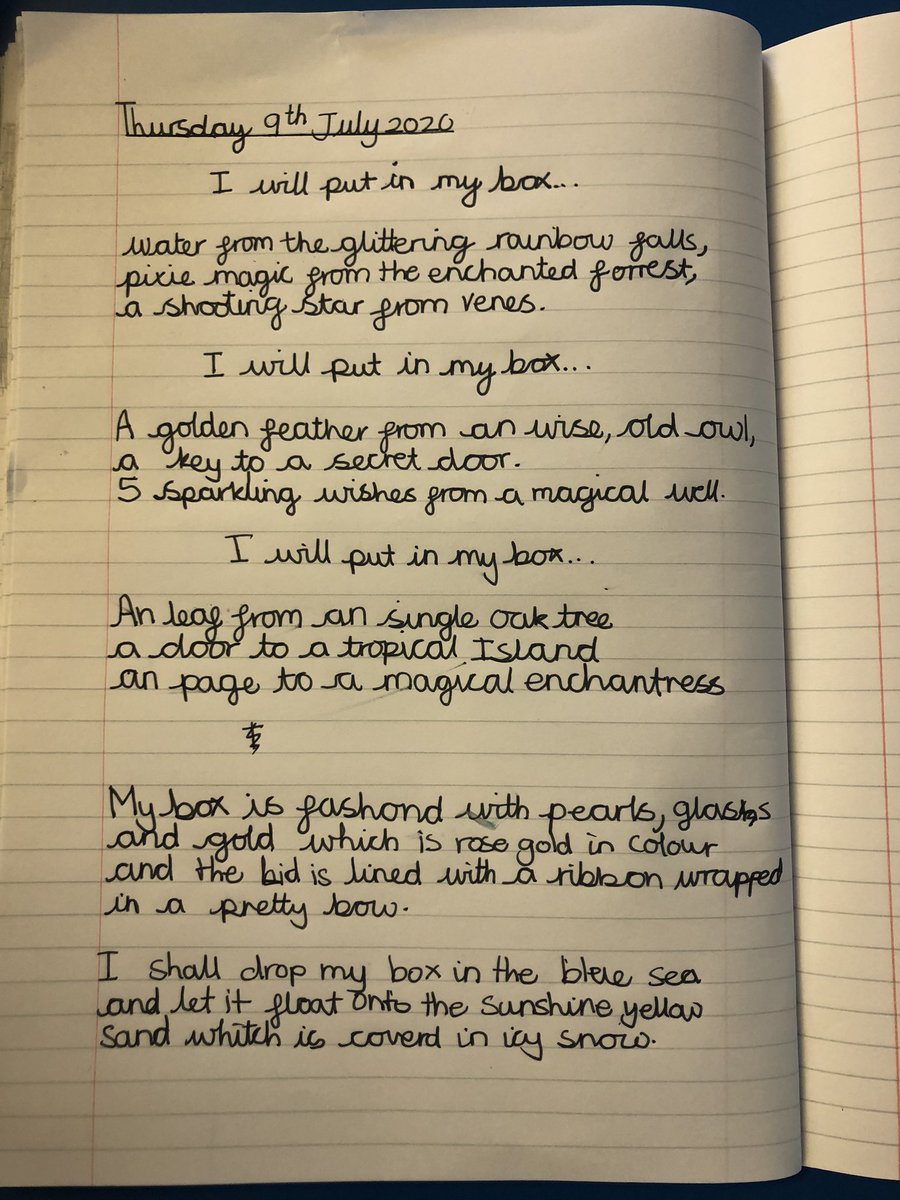 Thursday 9th July 2020
I will put in my box...
water from the glittering rainbow falls,
pixie magic from the enchanted forrest,
a shooting star from venes.
I will put in my box...
A golden feather from an wise, old owl,
a key to a secret door.
5 sparkling wishes from a magical well.
I will put in my box...
An leaf from an single oak tree
a door to a tropical Island
an page to a magical enchantress
My box is fashond with pearls,
and gold which is rose gold in colour
and the lid is lined with a ribbon wrapped
in a pretty bow.
I shall drop my box in the blue sea
and let it float onto the sunshine yellow
sand whitch is coverd in icy snow.